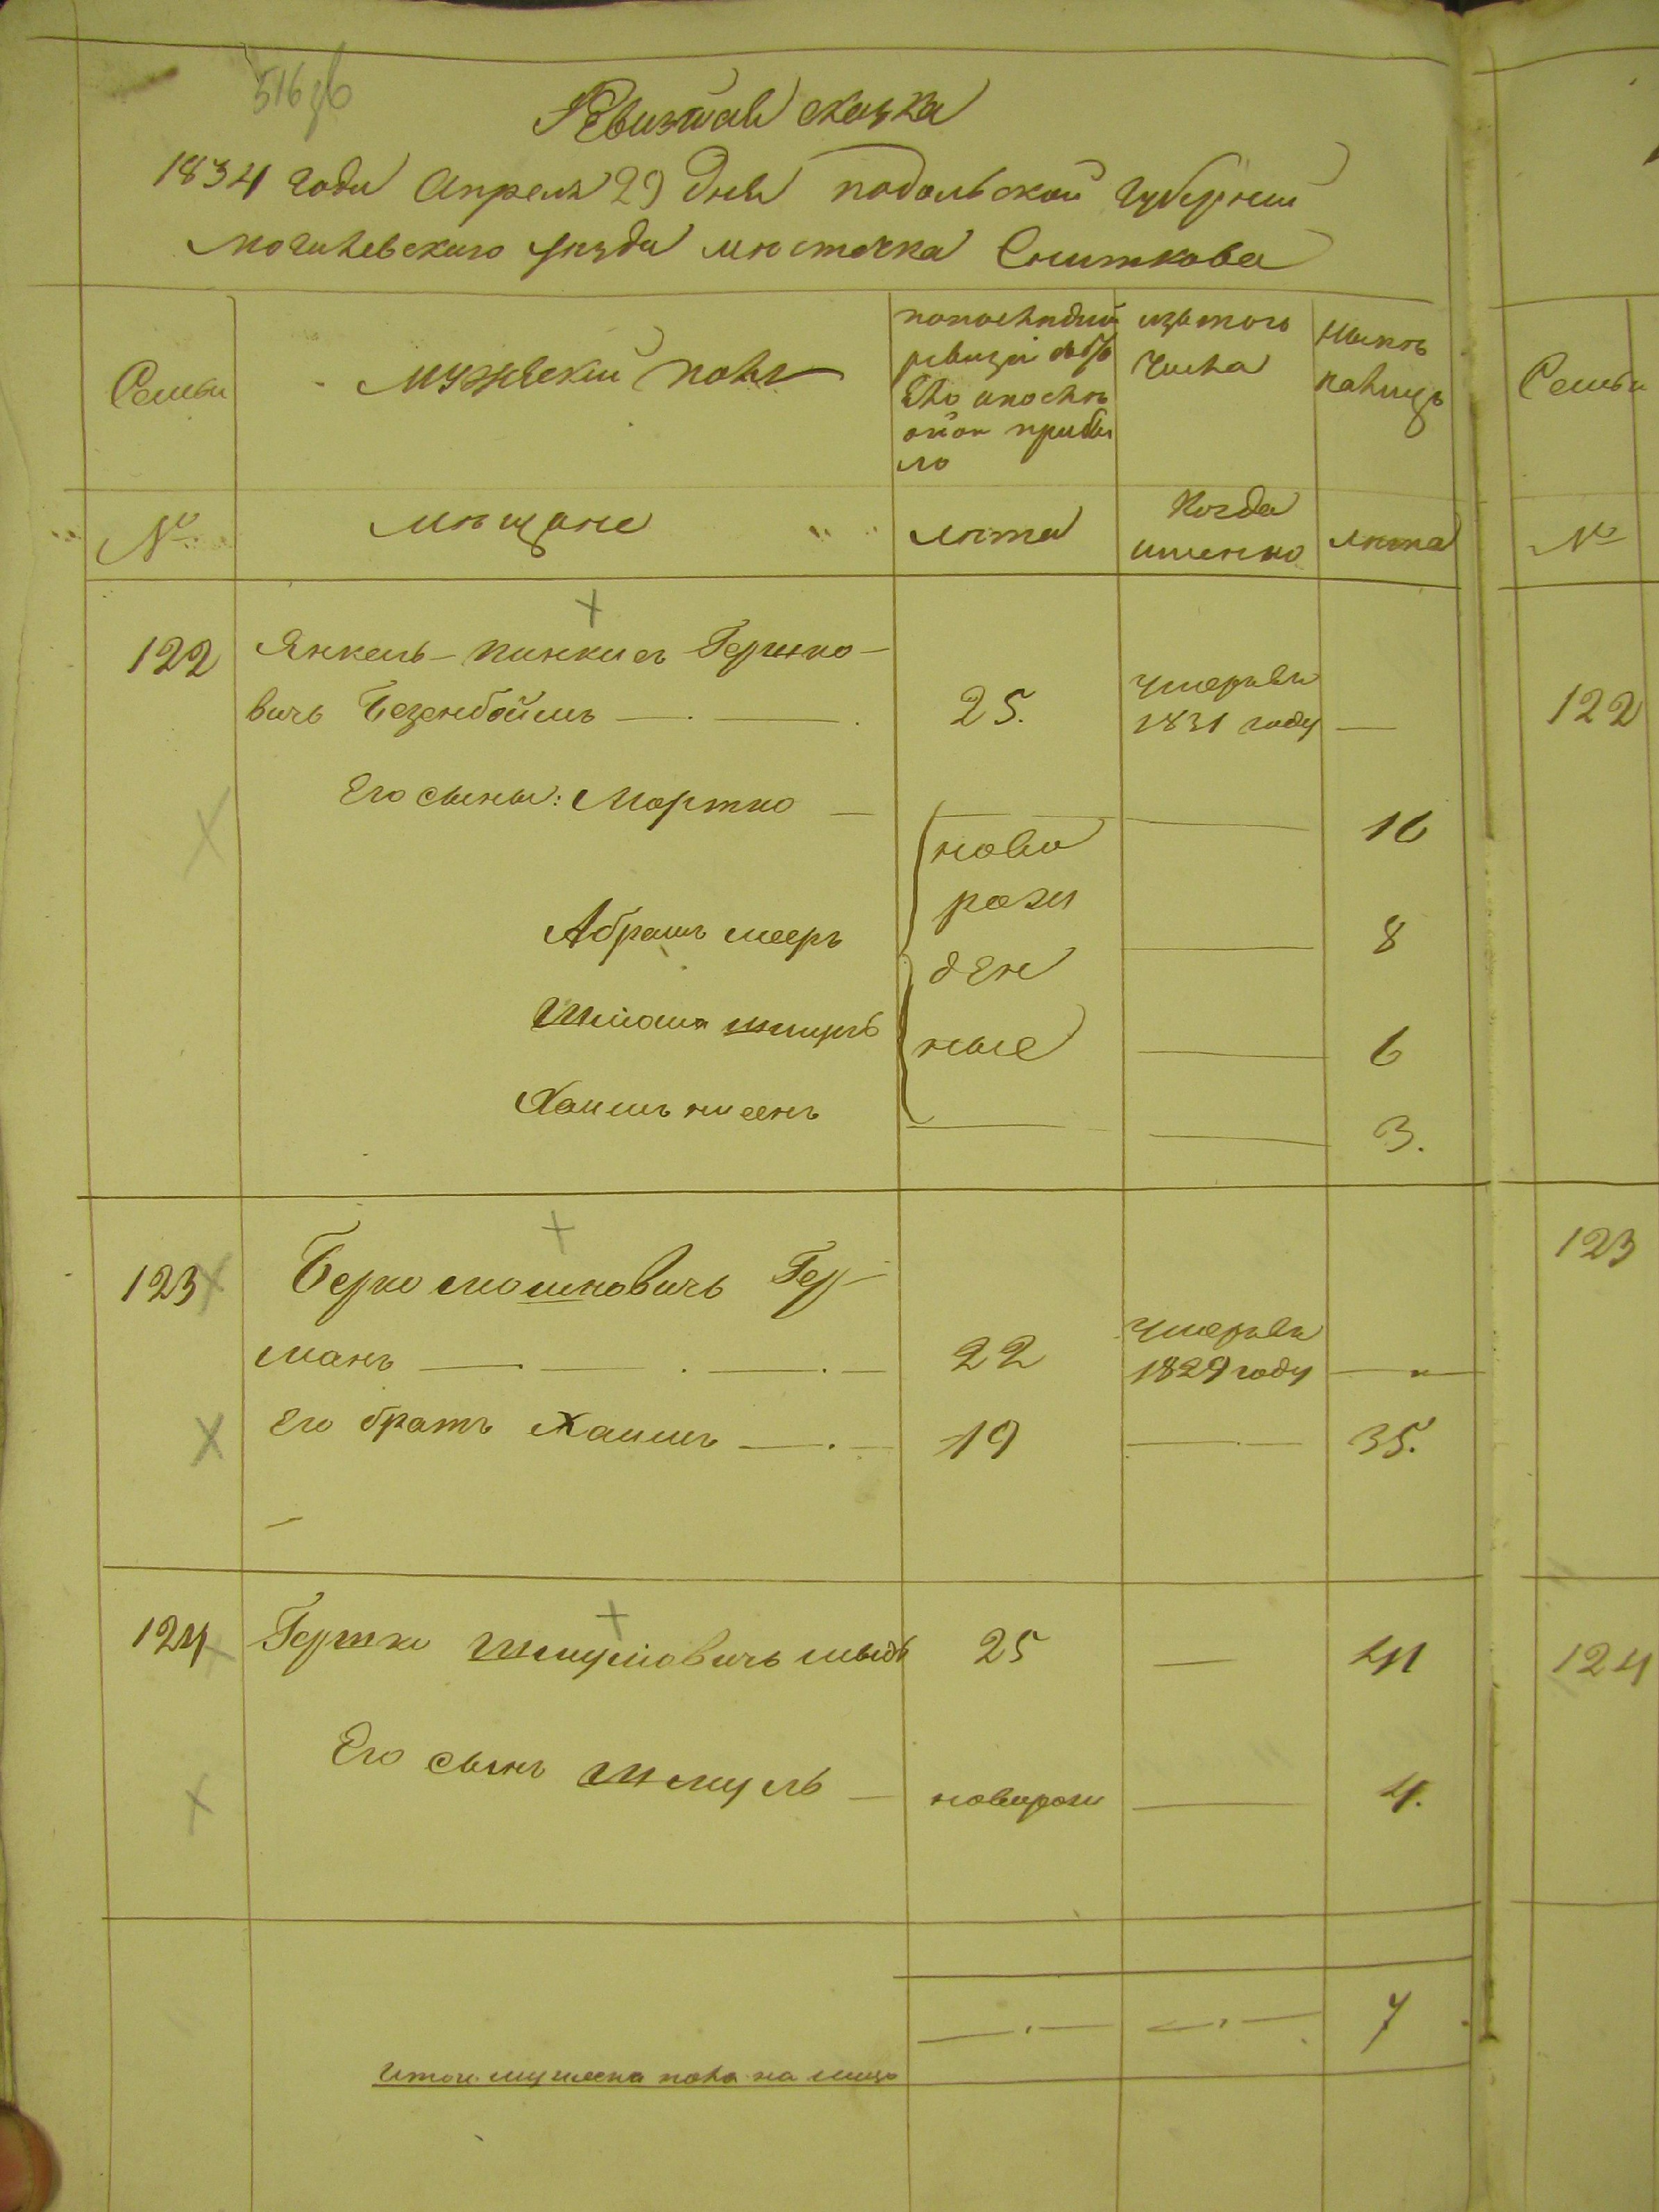 516 об
Ревизкая сказка
1834 года Апреля 29 дня подольской губернии
могилевского уезда местечка Сниткова
Семьи
мужеский полъ
попоследней
ревизии было
ило и после
оной прибы
ло
изътого
числа
Ныне
налицо
Семьи
№
мещане
лета
Когда
именно
лета
№
122
Янкель-пинкисъ Гершко-
вичь Безенбоймъ
25.
умерълъ
1831 году
122
Его сыны: Мортко
ново
рож
ден
ные
16
Абрамъ мееръ
8
6
Хаимъ нисенъ
3.
123
Берко мошковичь Гер-
манъ
22
умерълъ
1829 году
123
Его братъ Хаимъ
19
35.
124
Гершко Шмулиовичь
25
41
124
Его сынъ Шмуль
новорож
4.
7
Итого мужеска пола на лицо